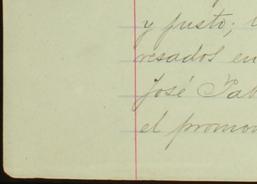 y justo;
resados en
José Pab
el promov